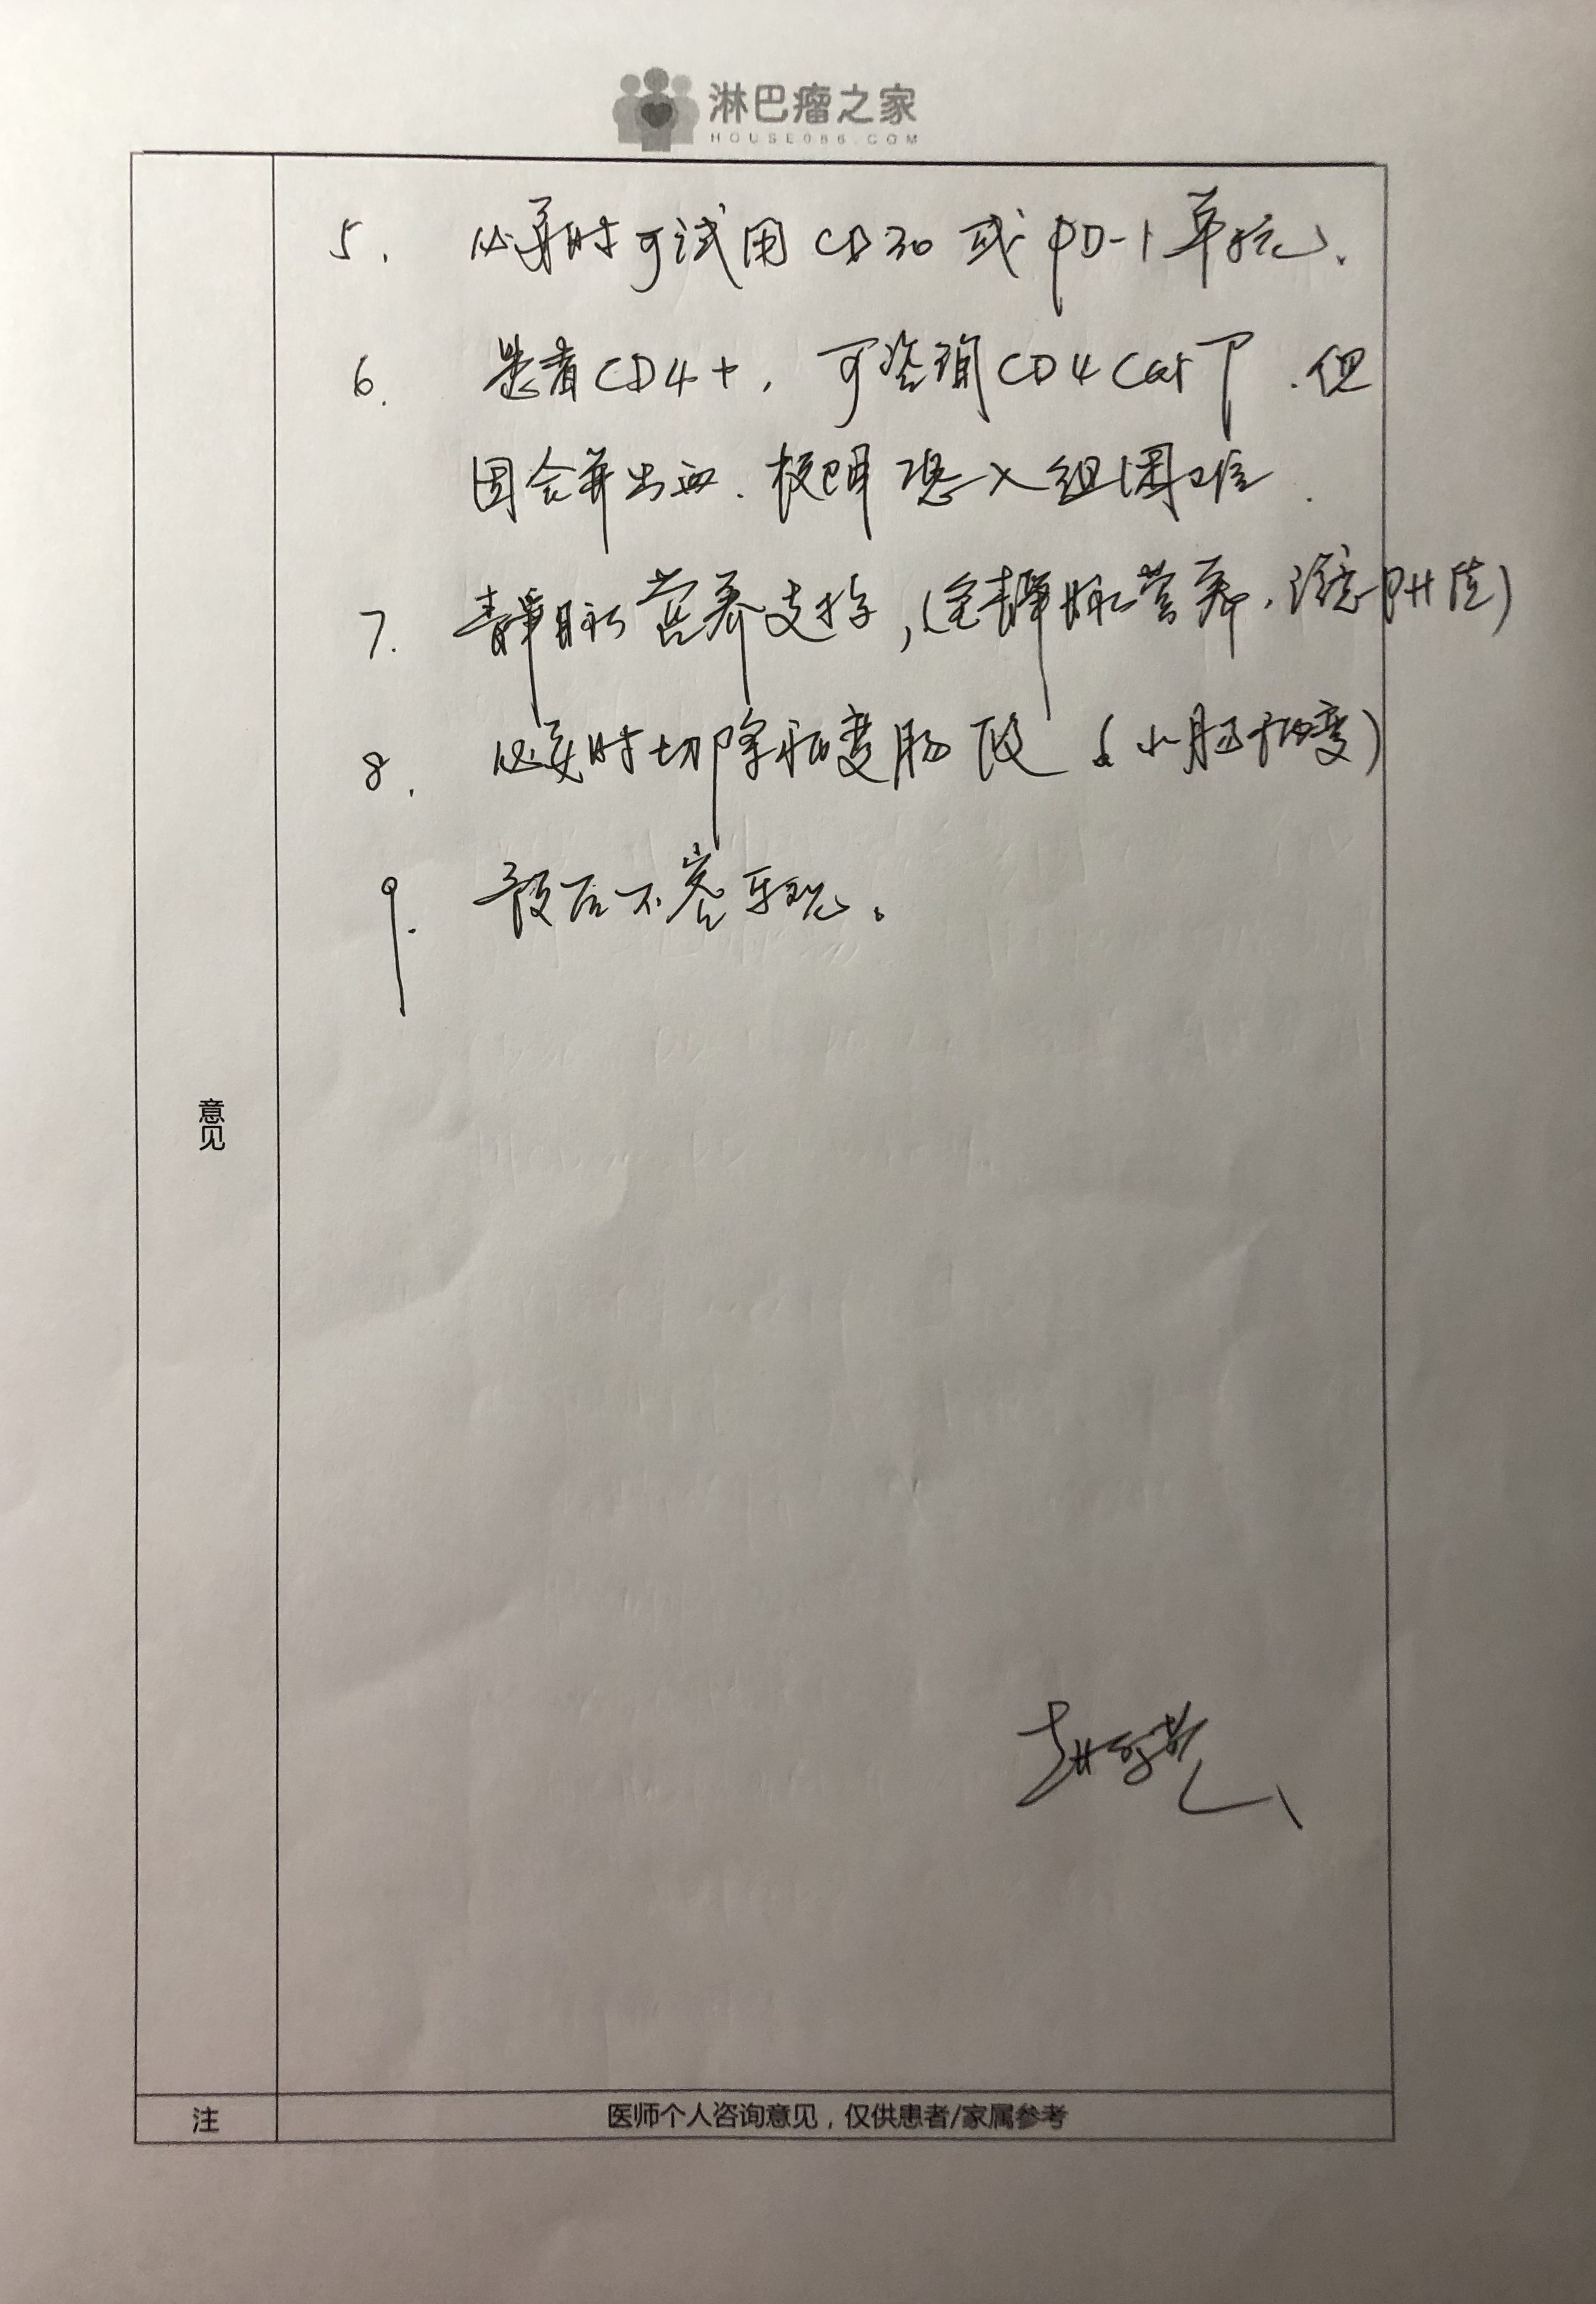 淋巴瘤之家
HOUSE086.COM
5. 必要时可试用CD30或PD-1单抗.
6. 患者CD4+, 可咨询CD4 CarT. 但
因合并出血. 梗阻 恐入组困难.
7. 静脉营养支持, (全静脉营养, 注意PH值)
8. 必要时切除病变肠段 (小肠病变)
9. 预后不容乐观。
意见
注 医师个人咨询意见，仅供患者/家属参考